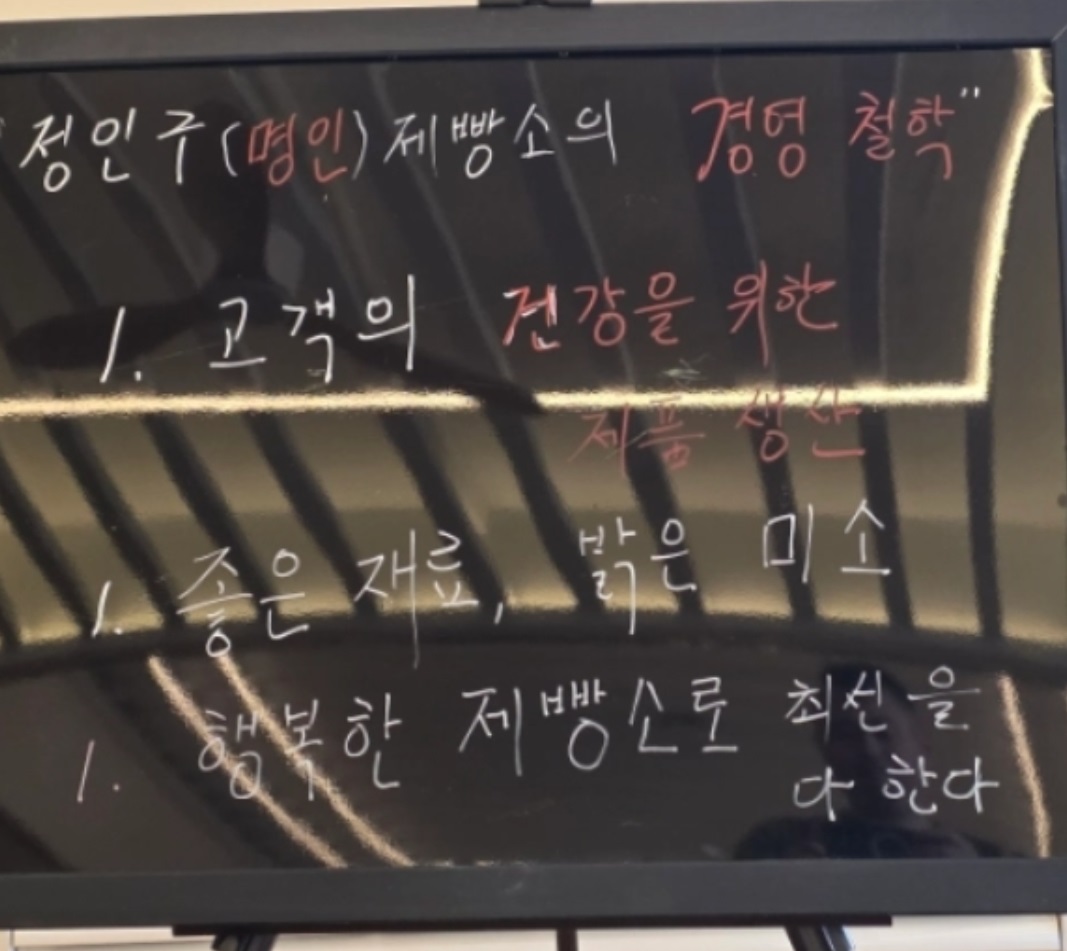 "정인구(명인)제빵소의 경영 철학"
1. 고객의 건강을 위한
제품 생산
1. 좋은 재료, 밝은 미소
1. 행복한 제빵소로 최선을
다 한다